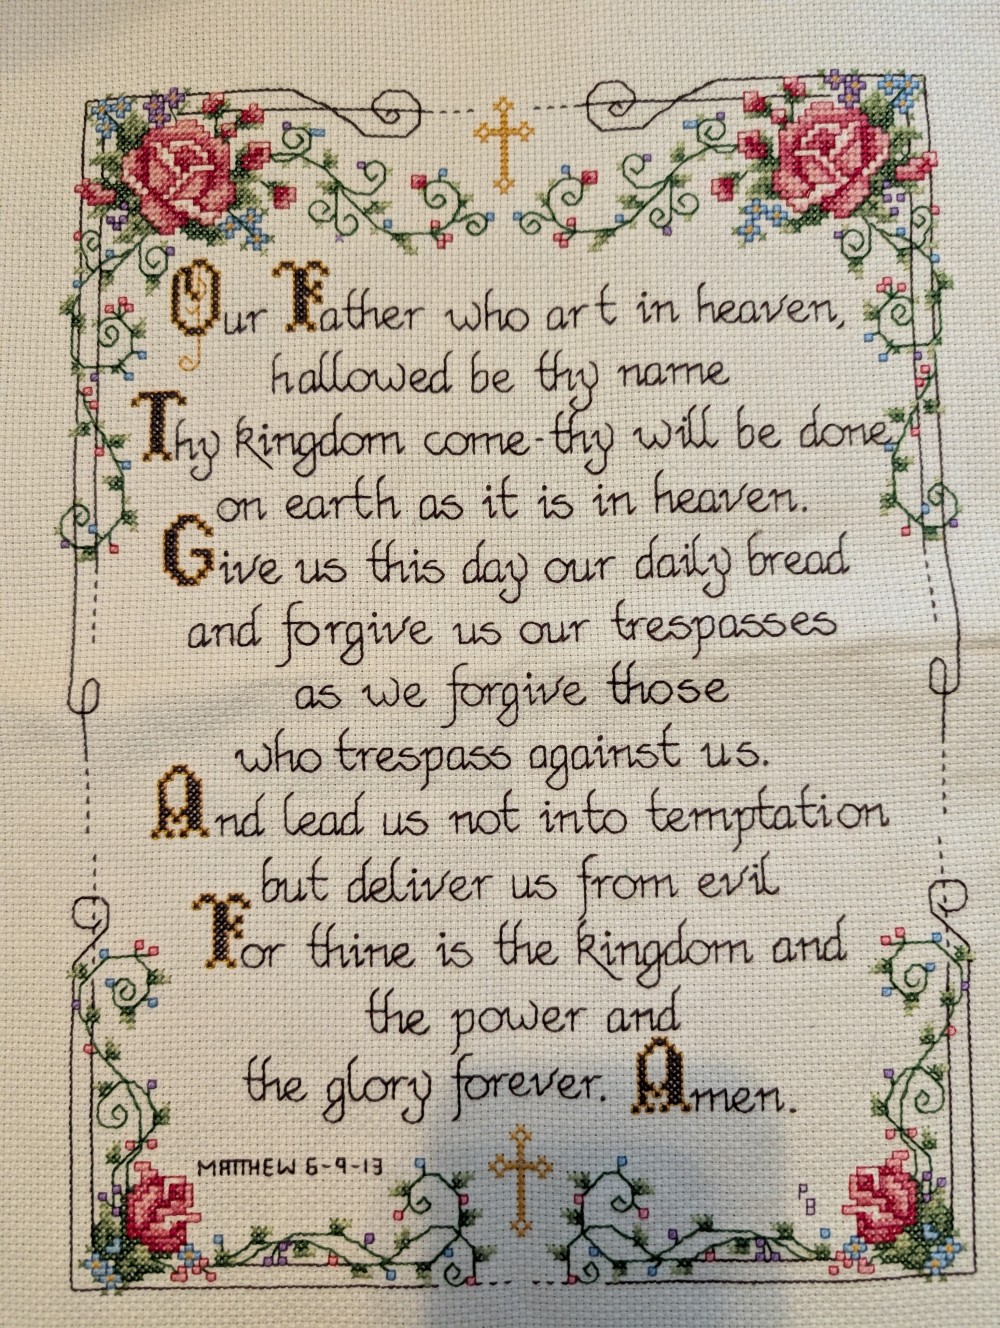 Our Father who art in heaven,
hallowed be thy name
Thy kingdom come-thy will be done,
on earth as it is in heaven.
Give us this day our daily bread
and forgive us our trespasses
as we forgive those
who trespass against us.
And lead us not into temptation
but deliver us from evil
For thine is the kingdom and
the power and
the glory forever. Amen.
MATTHEW 6-9-13
P
B